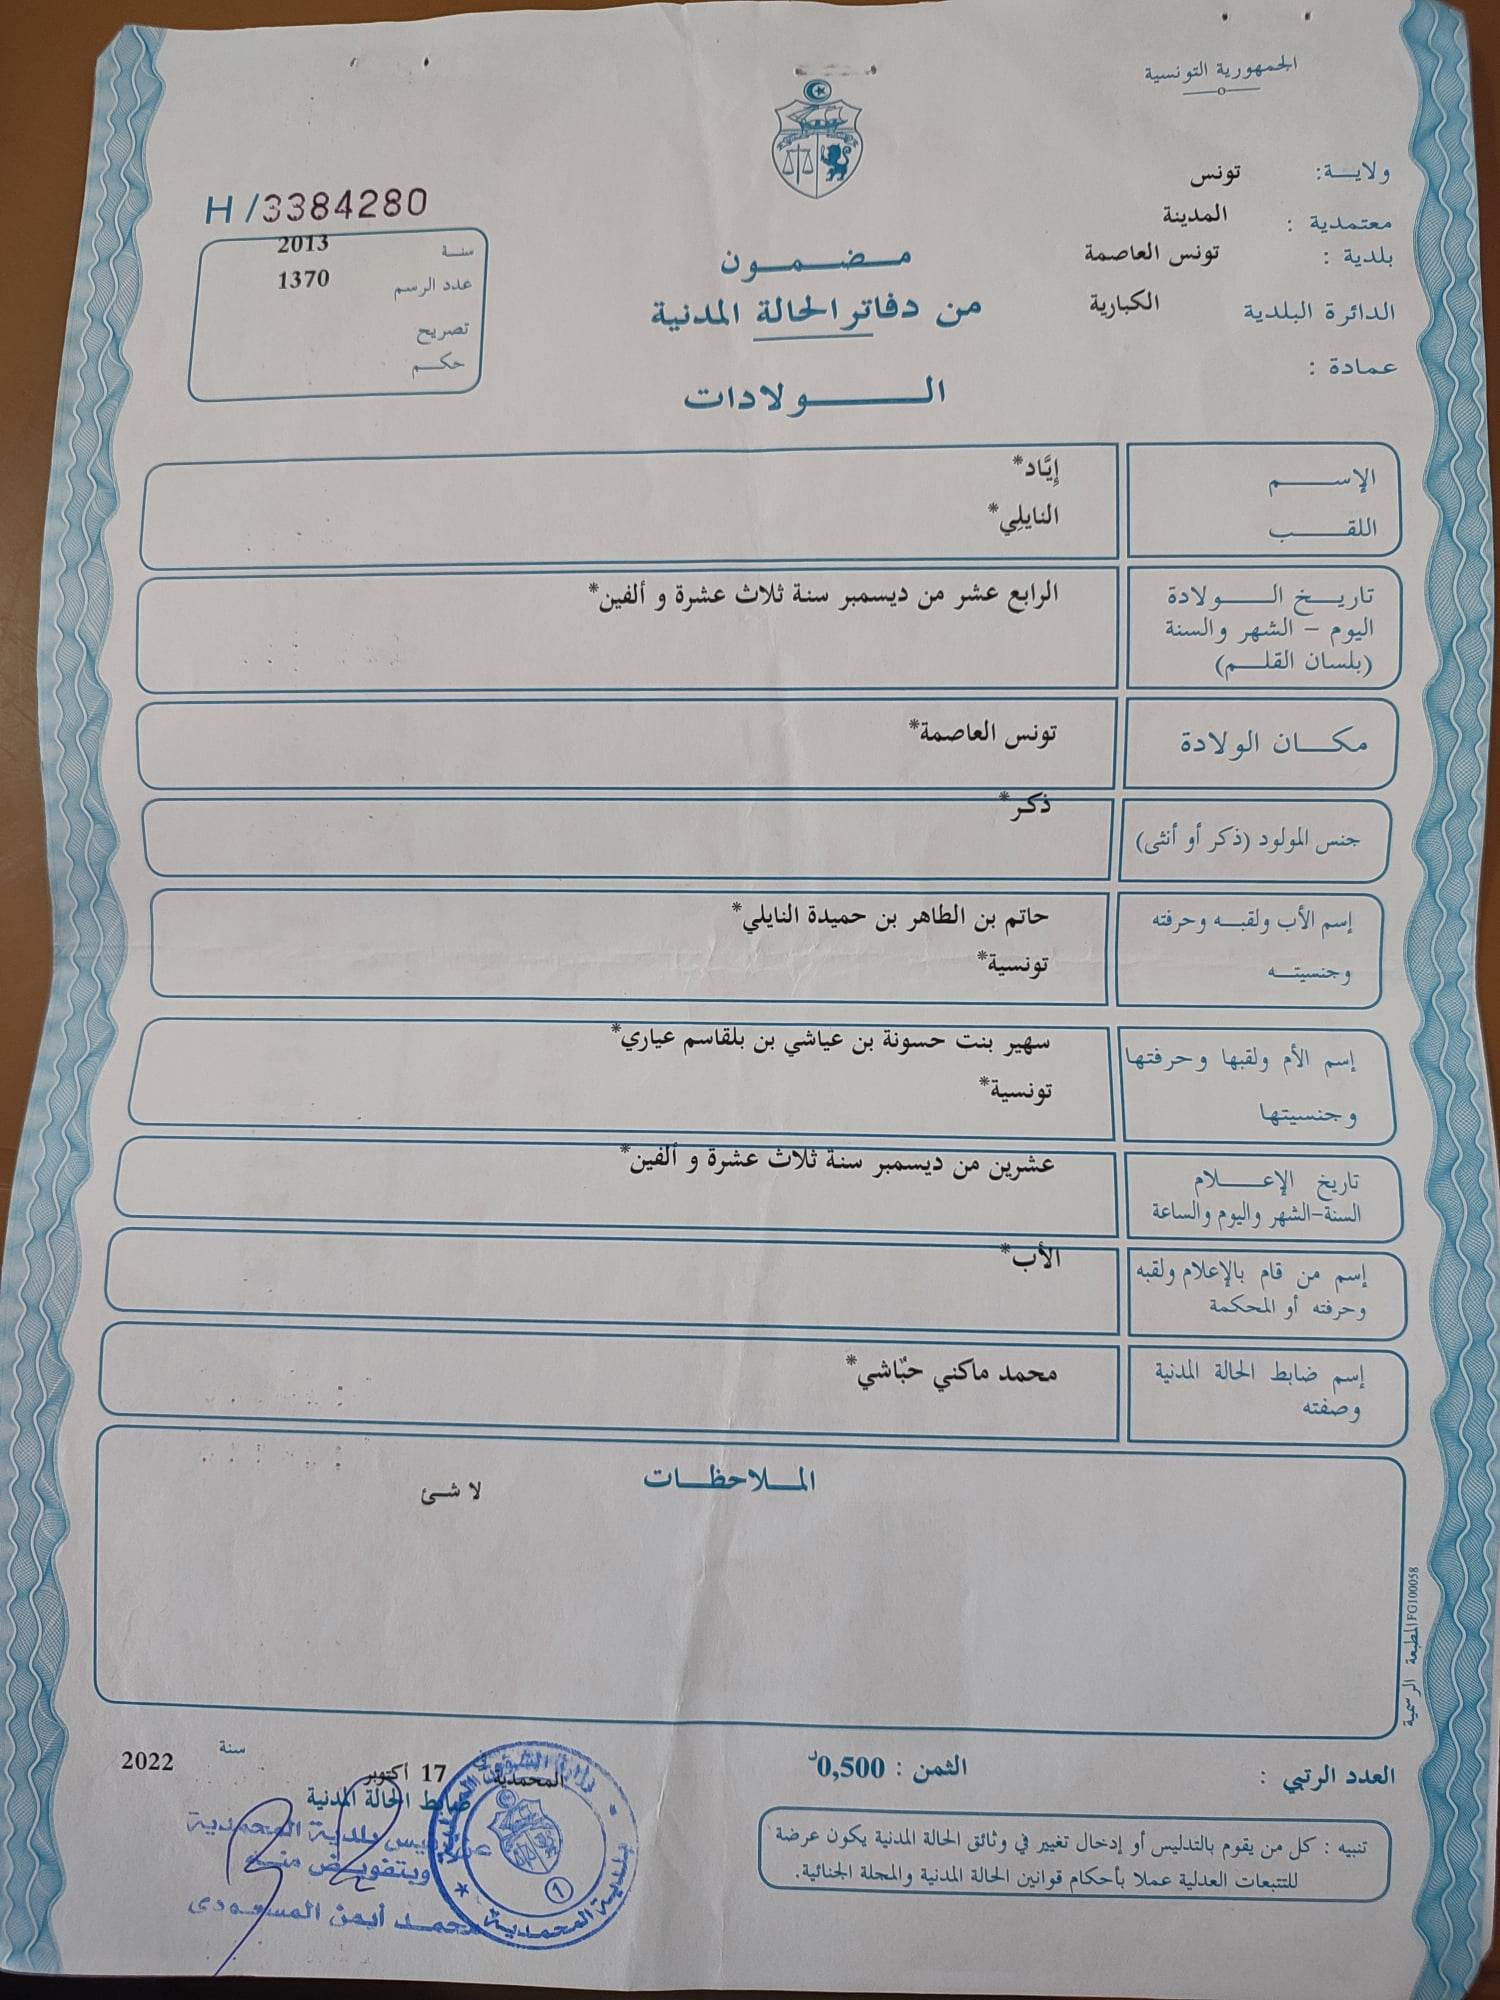 الجمهورية التونسية
ولايـــة: تونس
معتمدية : المدينة
بلدية : تونس العاصمة
الدائرة البلدية الكبارية
عمادة :
H/3384280
سنـة 2013
عدد الرسم 1370
تصريح
حكـم
مـضـمـون
من دفاتر الحالة المدنية
الـــولادات
الإســـم إِيَّاد*
اللقـــب النايلِي*
تاريـــخ الــــولادة الرابع عشر من ديسمبر سنة ثلاث عشرة و ألفين*
اليوم - الشهر والسنة
(بلسان القلـــم)
مكـــان الولادة تونس العاصمة*
جنس المولود (ذكر أو أنثى) ذكر*
إسم الأب ولقبـه وحرفته حاتم بن الطاهر بن حميدة النايلي*
وجنسيتــه تونسية*
إسم الأم ولقبها وحرفتها سهير بنت حسونة بن عياشي بن بلقاسم عياري*
وجنسيتها تونسية*
تاريخ الإعــــلام عشرين من ديسمبر سنة ثلاث عشرة و ألفين*
السنة-الشهر واليوم والساعة
إسم من قام بالإعلام ولقبه الأب*
وحرفته أو المحكمة
إسم ضابط الحالة المدنية محمد ماكني حبّاشي*
وصفته
المــلاحظــات
لا شئ
المطبعة الرسمية FG100058
العدد الرتبي :
الثمن : 0,500د
المحمدية في 17 أكتوبر سنة 2022
ضابط الحالة المدنية
بلدية المحمدية
وبتفويض منه
محمد أيمن المسعودي
وزارة الشؤون المحلية
بلدية المحمدية
1
تنبيه : كل من يقوم بالتدليس أو إدخال تغيير في وثائق الحالة المدنية يكون عرضة
للتتبعات العدلية عملا بأحكام قوانين الحالة المدنية والمجلة الجنائية.